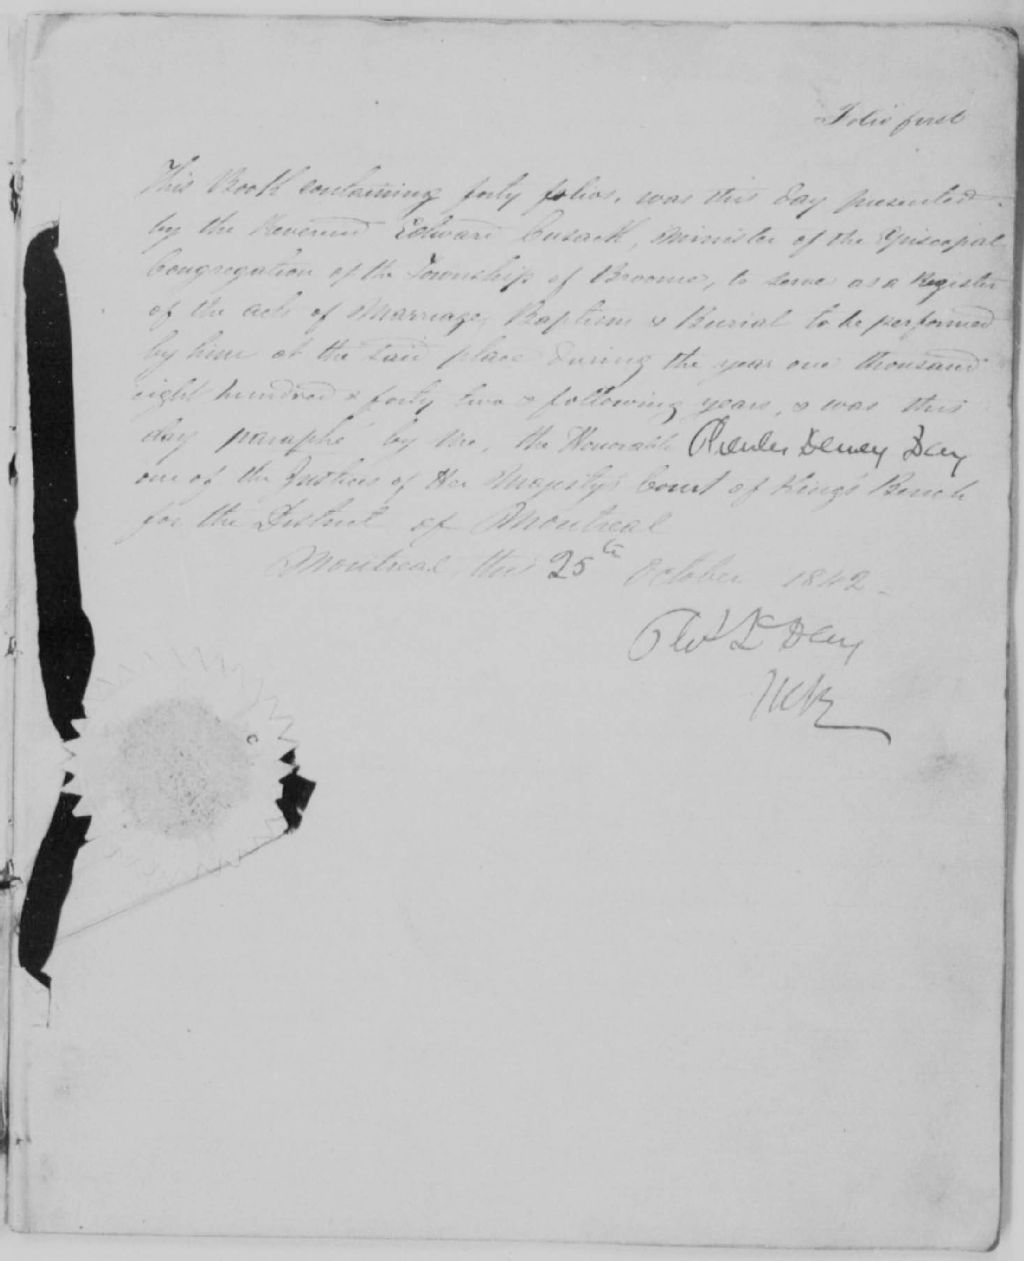 Folio first
This Book containing forty folios, was this day presented
by the Reverend Edward Cusack, Minister of the Episcopal
Congregation of the Township of Broome, to serve as a Register
of the acts of Marriage, Baptism & Burial to be performed
by him at the said place during the year one thousand
eight hundred & forty two & following years, & was this
day paraphé by me, the Honorable Charles Dewey Day
one of the Justices of Her Majesty's Court of King's Bench
for the District of Montreal
Montreal, this 25th October 1842.
Day